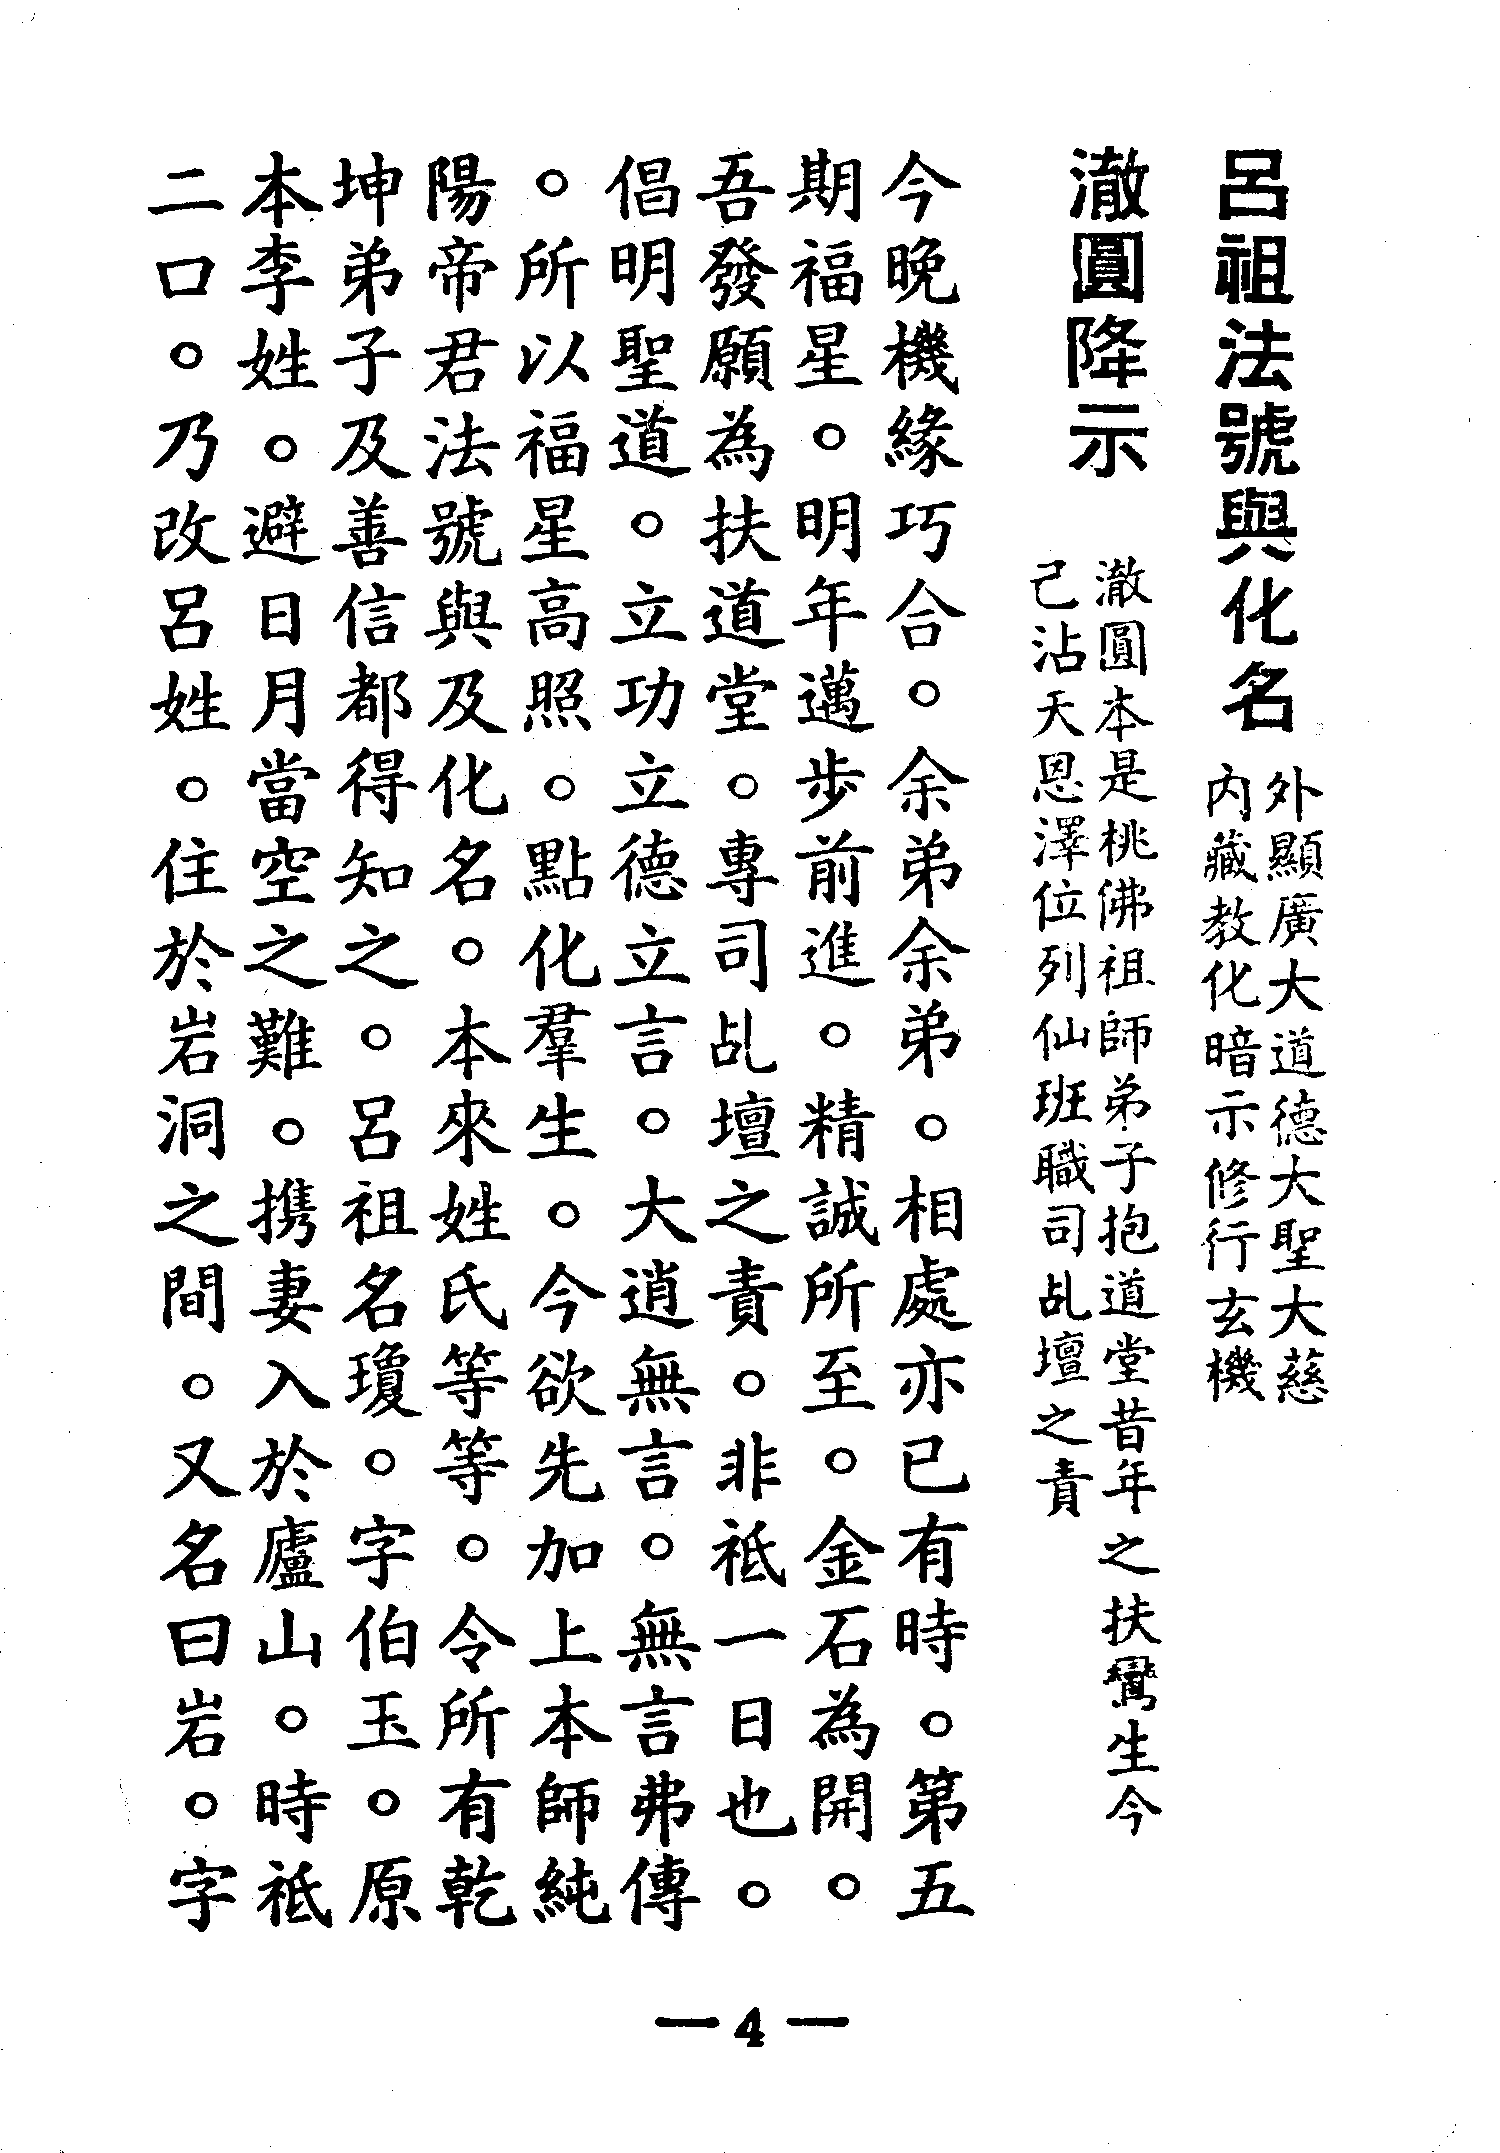 呂祖法號與化名
外顯廣大道德大聖大慈
內藏教化暗示修行玄機
澈圓降示
澈圓本是桃佛祖師弟子抱道堂昔年之扶鸞生今
己沾天恩澤位列仙班職司乩壇之責
今晚機緣巧合。余弟余弟。相處亦已有時。第五
期福星。明年邁步前進。精誠所至。金石為開。
吾發願為扶道堂。專司乩壇之責。非祗一日也。
倡明聖道。立功立德立言。大道無言。無言弗傳
。所以福星高照。點化羣生。今欲先加上本師純
陽帝君法號與及化名。本來姓氏等等。令所有乾
坤弟子及善信都得知之。呂祖名瓊。字伯玉。原
本李姓。避日月當空之難。携妻入於廬山。時祗
二口。乃改呂姓。住於岩洞之間。又名曰岩。字
— 4 —